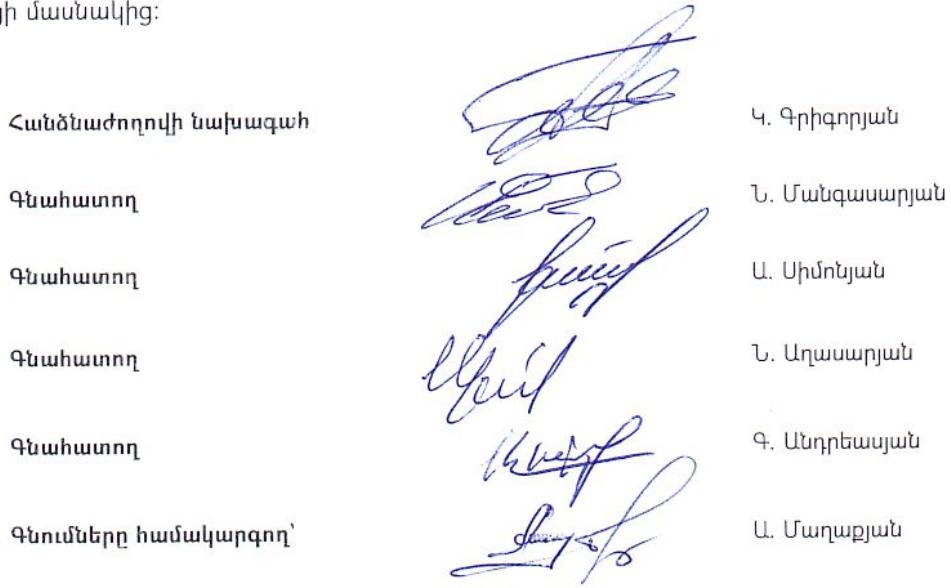 ի մասնակից:
Հանձնաժողովի նախագահ Կ. Գրիգորյան
Գնահատող Ն. Մանգասարյան
Գնահատող Ա. Սիմոնյան
Գնահատող Ն. Աղասարյան
Գնահատող Գ. Անդրեասյան
Գնումները համակարգող՝ Ա. Մաղաքյան